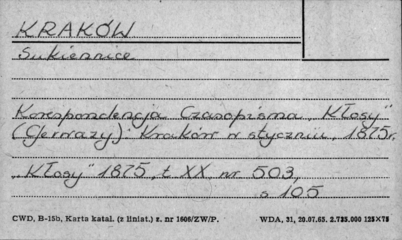 KRAKÓW
Sukiennice
Korespondencja Czasopisma „Kłosy"
(Gerwazy): Kraków w styczniu, 1875r.
„Kłosy" 1875, t XX nr 503,
s 105
CWD, B-15b, Karta katal. (z liniat.) z. nr 1606/ZW/P. WDA, 31, 20.07.65. 2.725.000 125×75